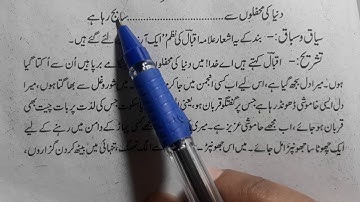 دنیا کی محفلوں سے ............................ سا بج رہا ہے
سیاق و سباق :- بند کے یہ اشعار علامہ اقبال کی نظم "ایک آرزو" لئے گئے ہیں۔
تشریح :- اقبال کہتے ہیں اے خدا! میں دنیا کی محفلوں برپا ہیں اُن سے اُکتا گیا
ہوں۔ میرا دل بجھ گیا ہے، اس لیے اب کسی انجمن میں جا کر میں شور و غل سے بھاگتا ہوں، میرا
دل ایسی خاموشی ڈھونڈ رہا ہے جس پر گفتگو قربان ہو جائے، یعنی سکوت جس کی لذت پر بات چیت بھی
قربان ہو جائے، اب مجھے خاموشی عزیز ہے۔ میری پہاڑ کے دامن میں رہنے کے لیے
ایک چھوٹا سا جھونپڑا مل جائے۔ میں اس جھونپڑ الگ تھلگ، تنہائی میں بیٹھ کر دن گزاروں،